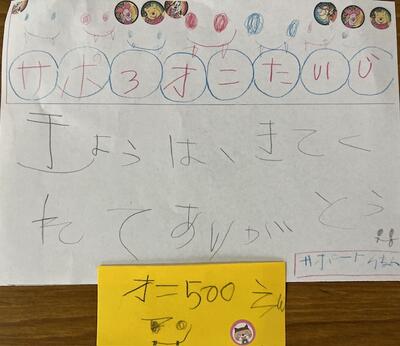 サポろオニたいじ
きょうは、きてく
れてありがとう
サポート
オニ500えん